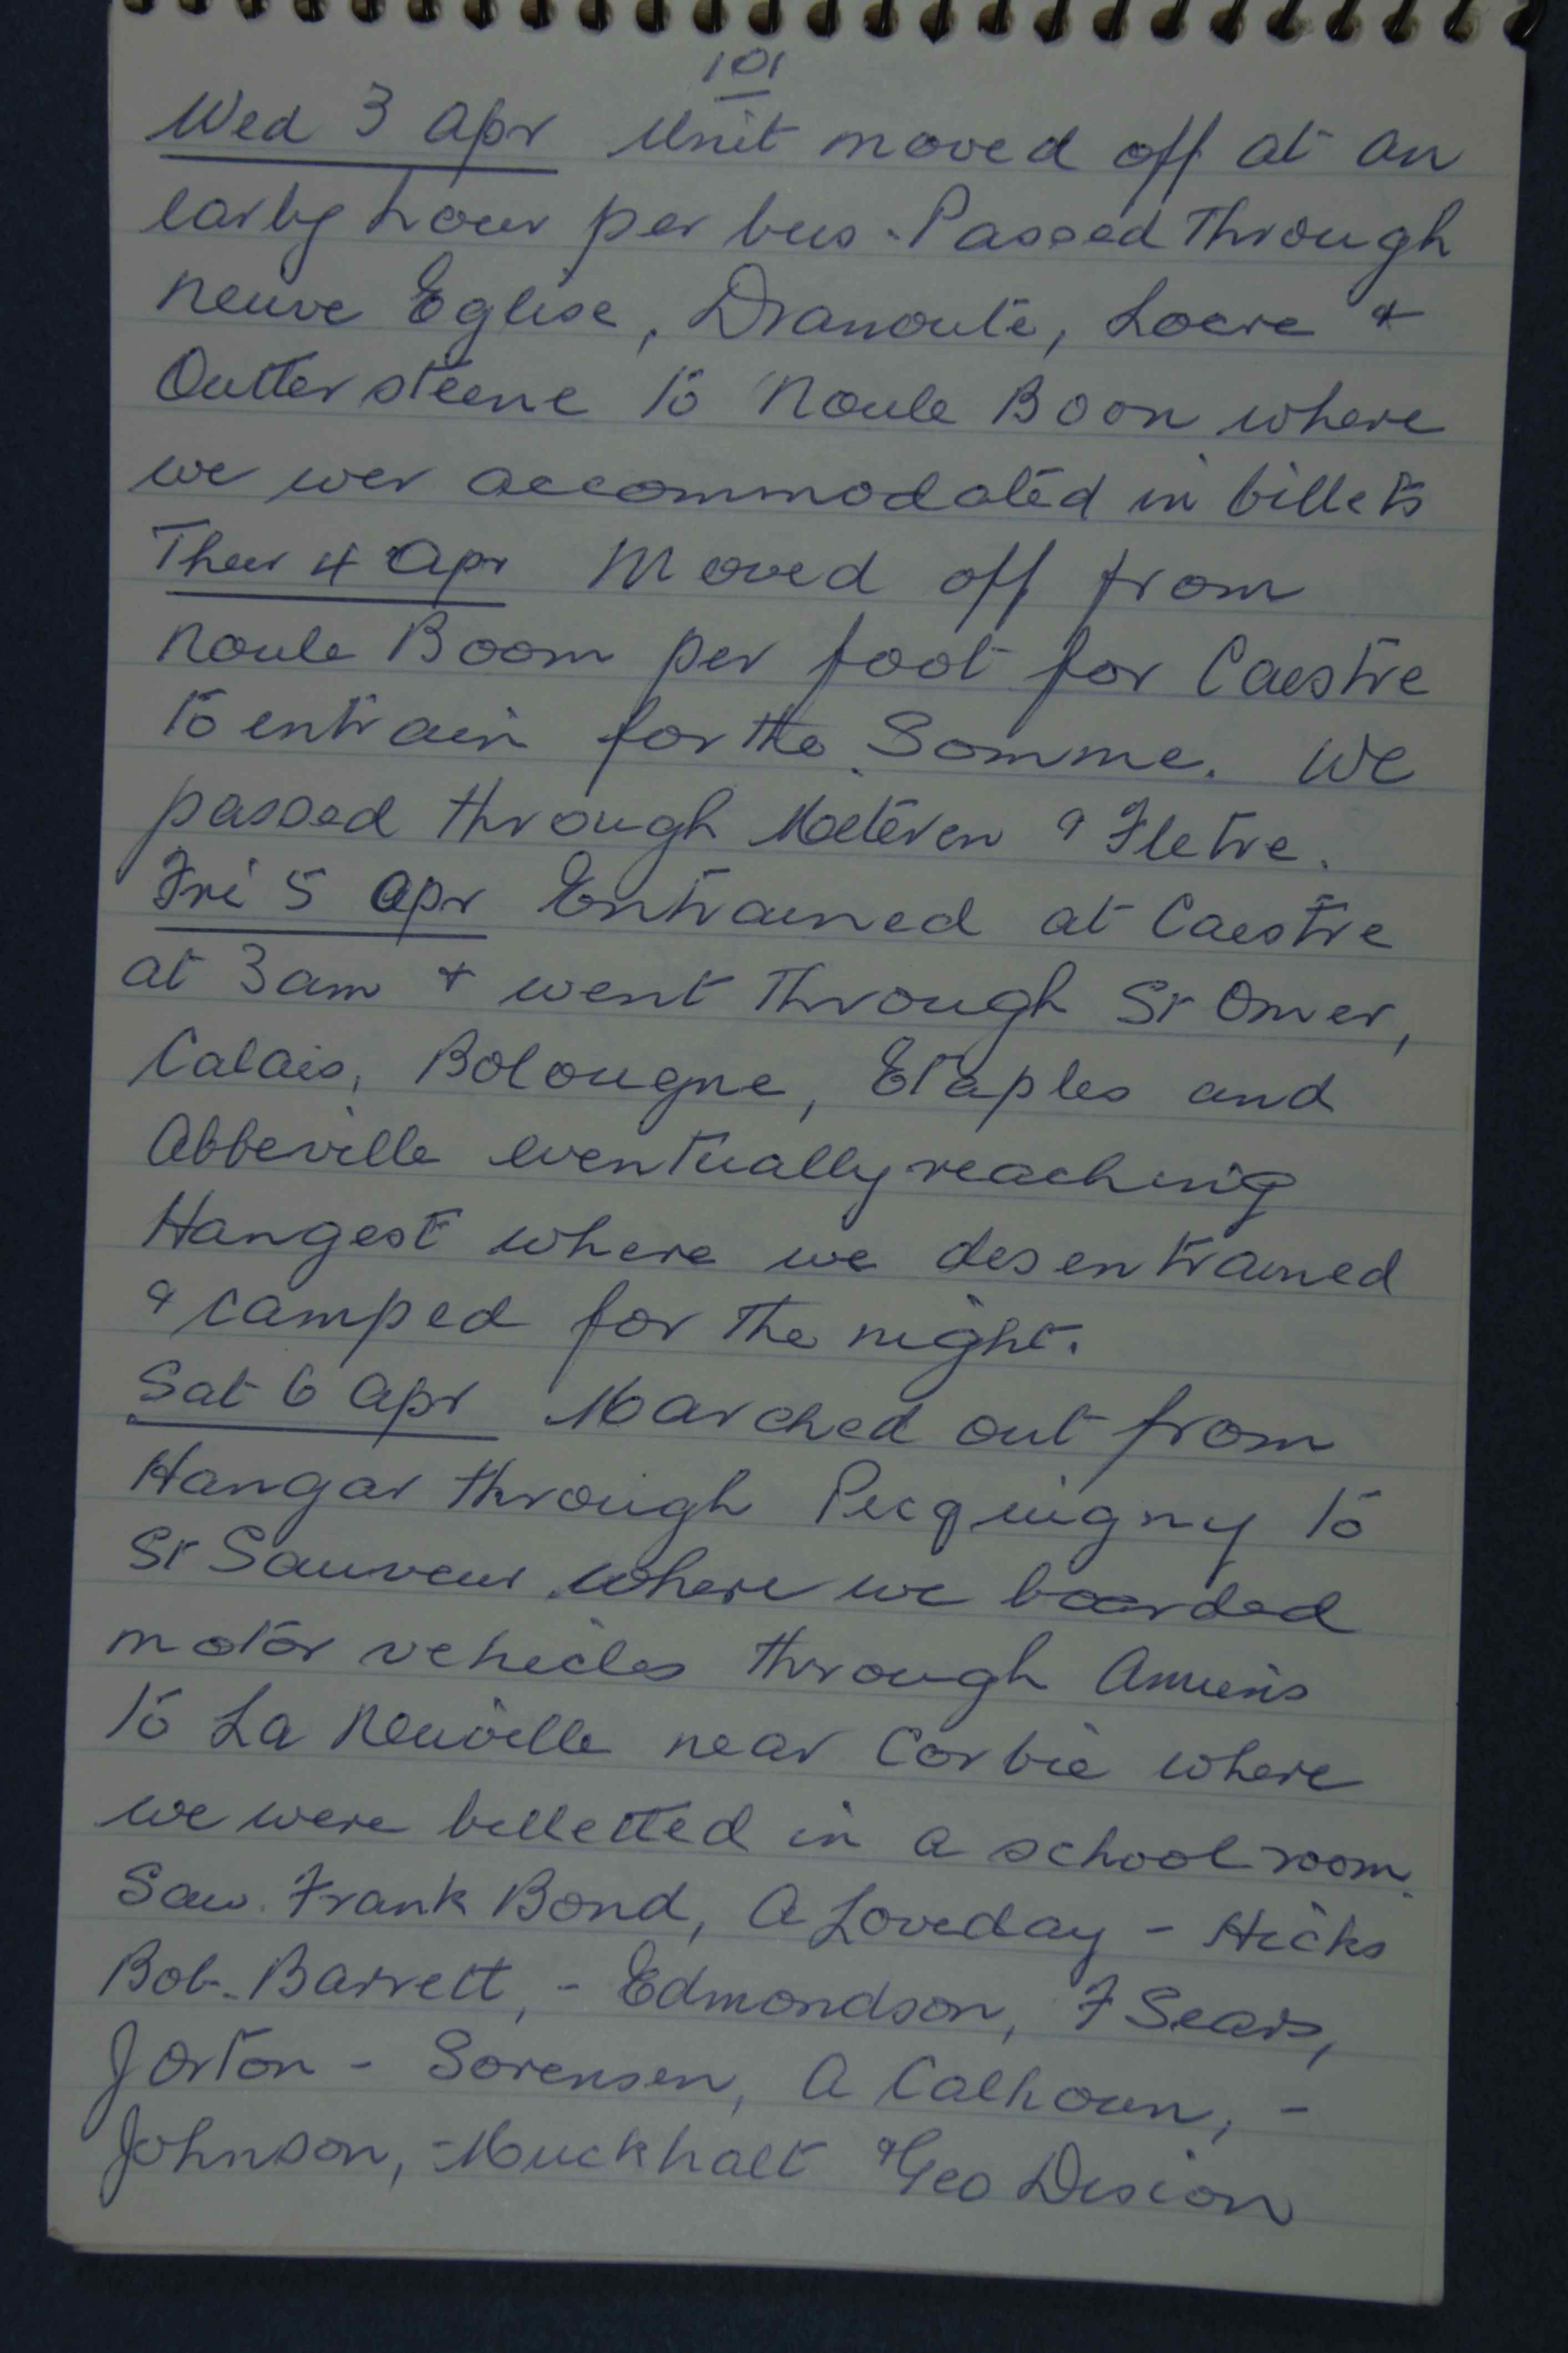 101
Wed 3 Apr Unit moved off at an
early hour per bus. Passed through
Neuve Eglise, Dranoute, Locre &
Outtersteene to Noule Boon where
we wer accommodated in billets
Thur 4 Apr Moved off from
Noule Boom per foot for Caestre
to entrain for the Somme. We
passed through Meteren & Fletre.
Fri 5 Apr Entrained at Caestre
at 3am & went through St Omer,
Calais, Bolougne, Etaples and
Abbeville eventually reaching
Hangest where we desentrained
& camped for the night.
Sat 6 Apr Marched out from
Hangar through Picquigny to
St Sauveur where we boarded
motor vehicles through Amiens
to La Neuville near Corbie where
we were billetted in a schoolroom.
Saw Frank Bond, A Loveday - Hicks
Bob Barrett, - Edmondson, F Sears,
J Orton - Sorensen, A Calhoun, -
Johnson, - Muckhalt & Geo Dision